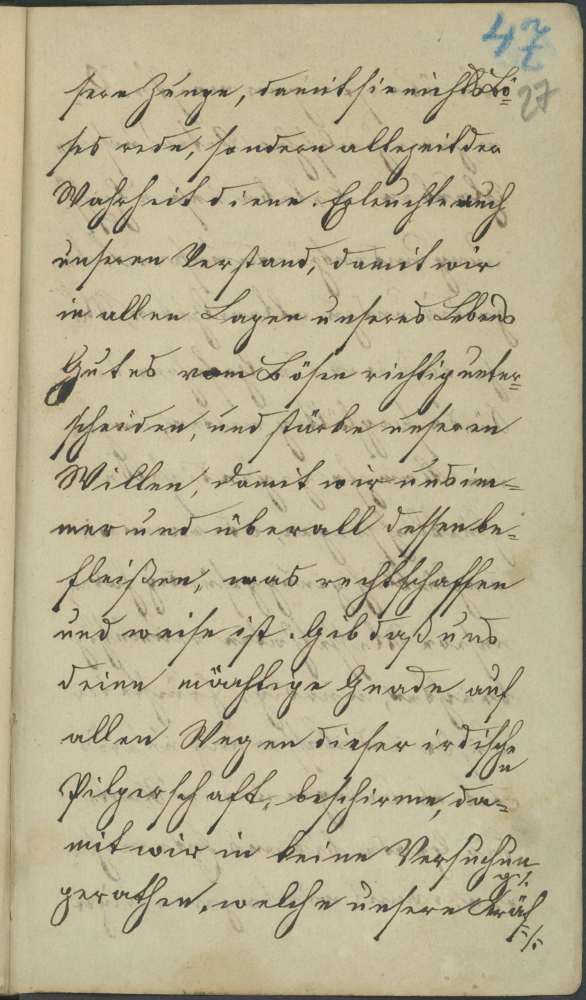 47
27
sere Zunge, damit sie nichts Bö=
ses rede, sondern allezeit der
Wahrheit diene. Erleuchte auch
unseren Verstand, damit wir
in allen Lagen unseres Lebens
Gutes vom Bösen richtig unter=
scheiden, und stärke unseren
Willen, damit wir uns im=
mer und überall dessen be=
fleißen, was rechtschaffen
und weise ist. Gib daß uns
deine mächtige Gnade auf
allen Wegen dieser irdischen
Pilgerschaft, beschirme, da=
mit wir in keine Versuchung
gerathen, welche unsere Kräf